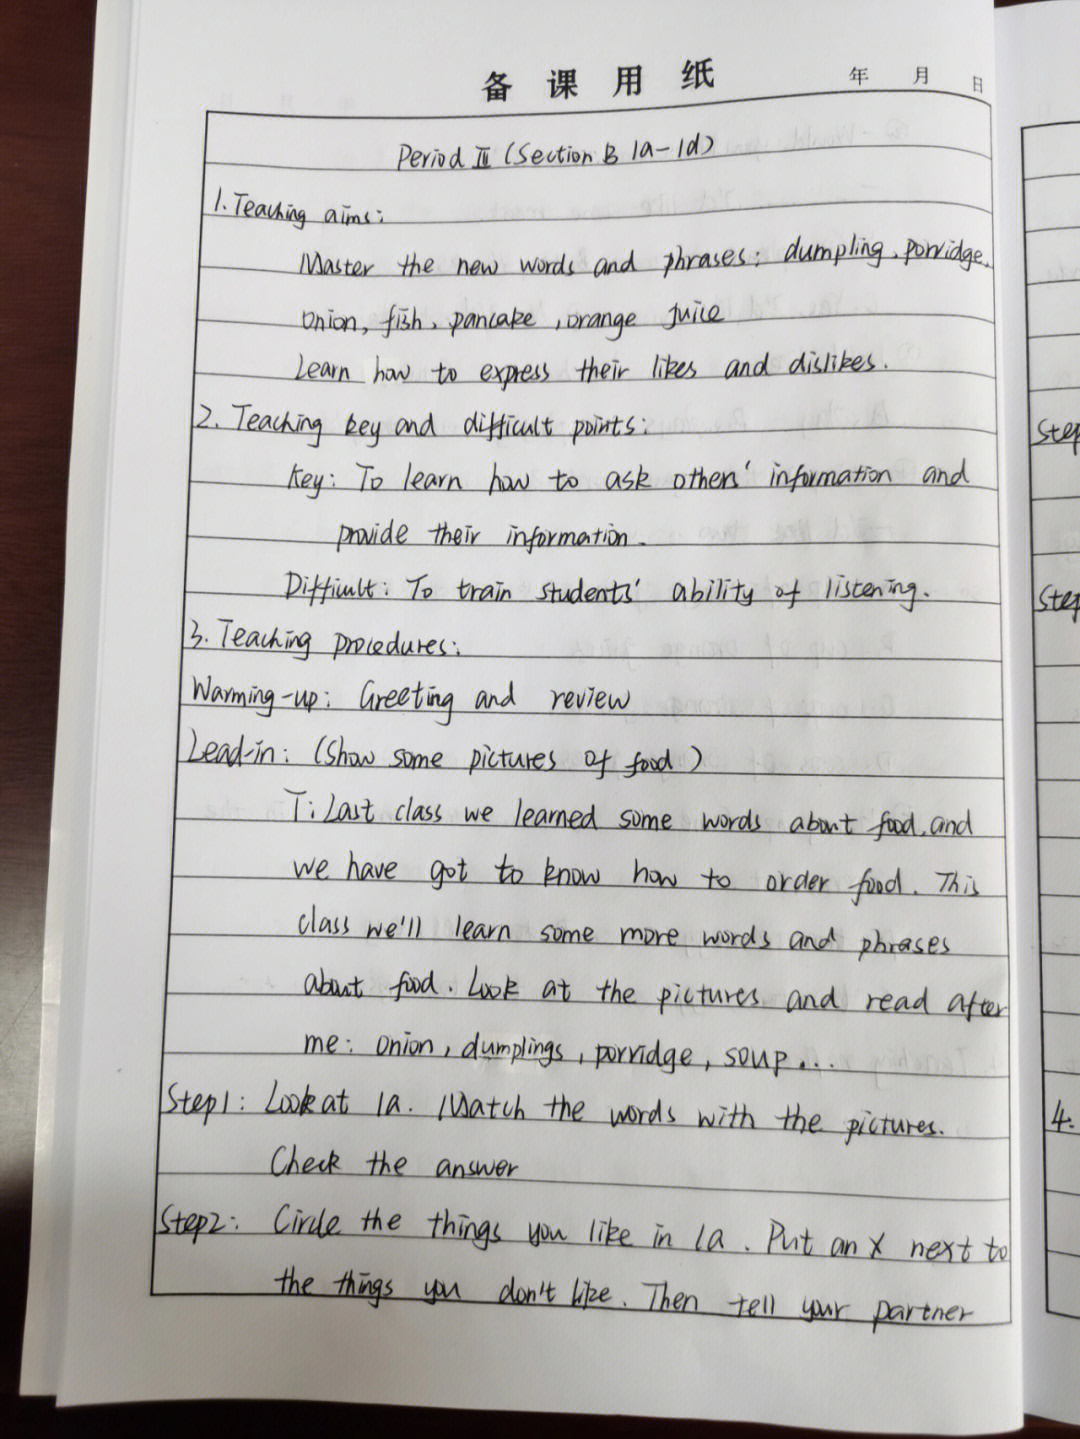 备课用纸 年 月 日
Period III (Section B 1a-1d)
1. Teaching aims:
Master the new words and phrases: dumpling, porridge,
onion, fish, pancake, orange juice
Learn how to express their likes and dislikes.
2. Teaching key and difficult points:
Key: To learn how to ask others' information and
provide their information.
Difficult: To train students' ability of listening.
3. Teaching procedures:
Warming-up: Greeting and review
Lead-in: (Show some pictures of food)
T: Last class we learned some words about food, and
we have got to know how to order food. This
class we'll learn some more words and phrases
about food. Look at the pictures and read after
me: onion, dumplings, porridge, soup...
Step1: Look at 1a. Match the words with the pictures.
Check the answer
Step2: Circle the things you like in 1a. Put an X next to
the things you don't like. Then tell your partner
Step
Step
4.